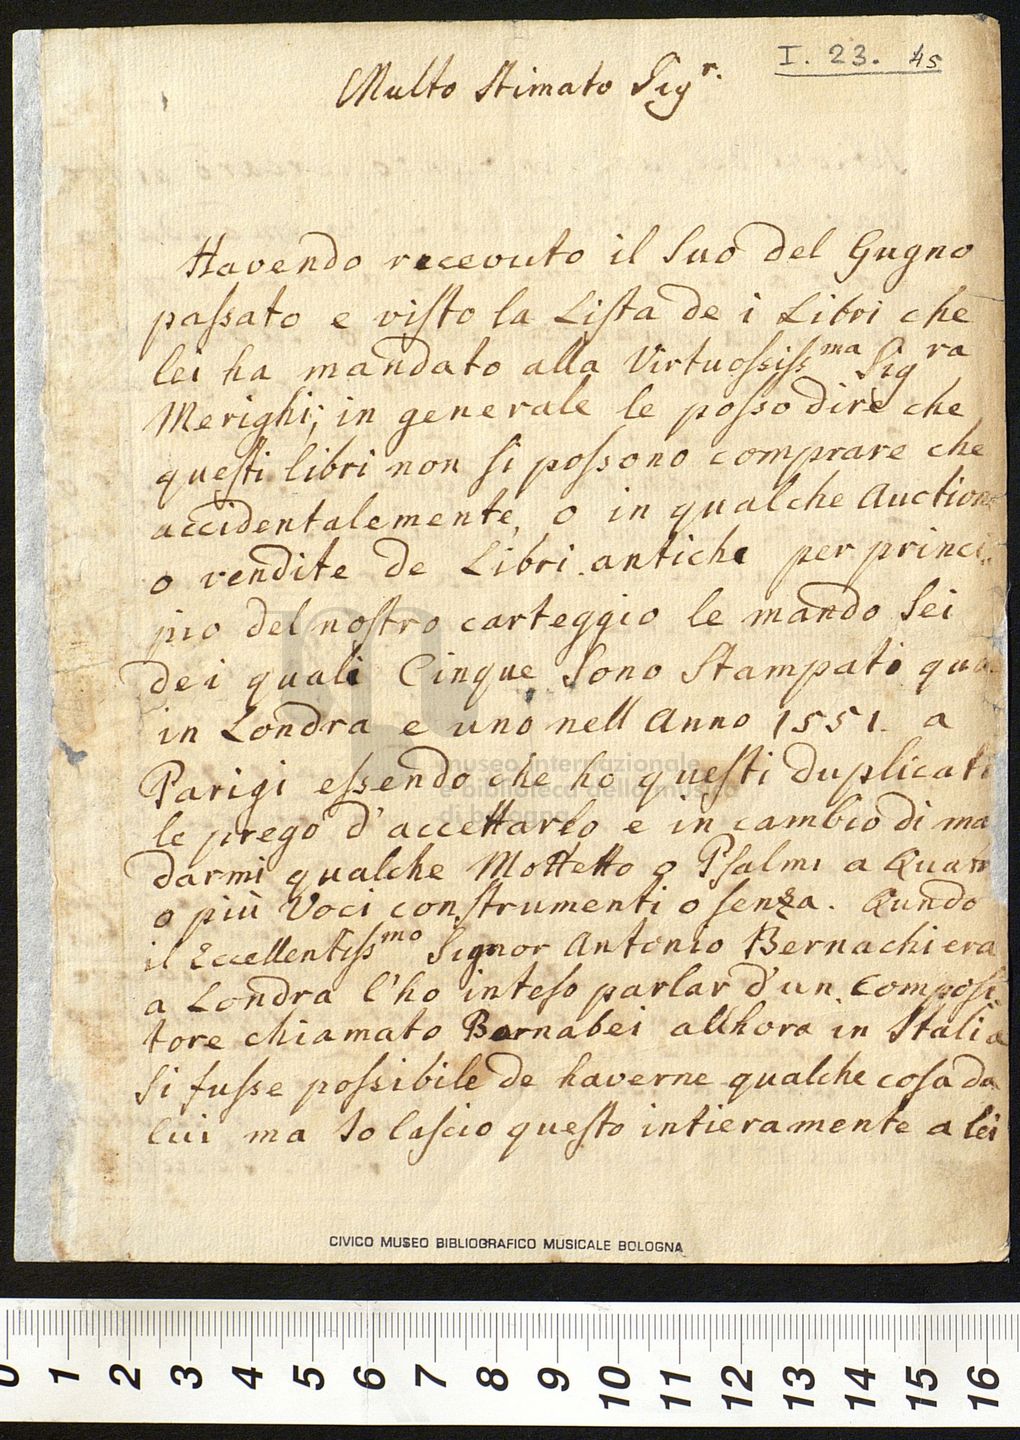 I. 23. 45
Multo Stimato Sigr.
Havendo recevuto il Suo del Gugno
passato e visto la Lista de i Libri che
lei ha mandato alla Virtuossissma Sigra
Merighi; in generale le posso dire che
questi libri non si possono comprare che
accidentalemente, o in qualche Auction
o vendite de Libri antichi per princi..
pio del nostro carteggio le mando Sei
dei quali Cinque Sono Stampati qua
in Londra e uno nell Anno 1551. a
Parigi essendo che ho questi duplicati
le prego d'accettarlo e in cambio di ma
darmi qualche Mottetto o Psalmi a Quatr
o più Voci con strumenti o senza. Qundo
il Eccellentissmo Signor Antonio Bernachi era
a Londra l'ho inteso parlar d'un Composi
tore chiamato Bernabei allhora in Italia
Si fusse possibile de haverne qualche cosa da
lui ma Io lascio questo intieramente a lei
museo internazionale
e biblioteca della musica
di bologna
CIVICO MUSEO BIBLIOGRAFICO MUSICALE BOLOGNA
0 1 2 3 4 5 6 7 8 9 10 11 12 13 14 15 16